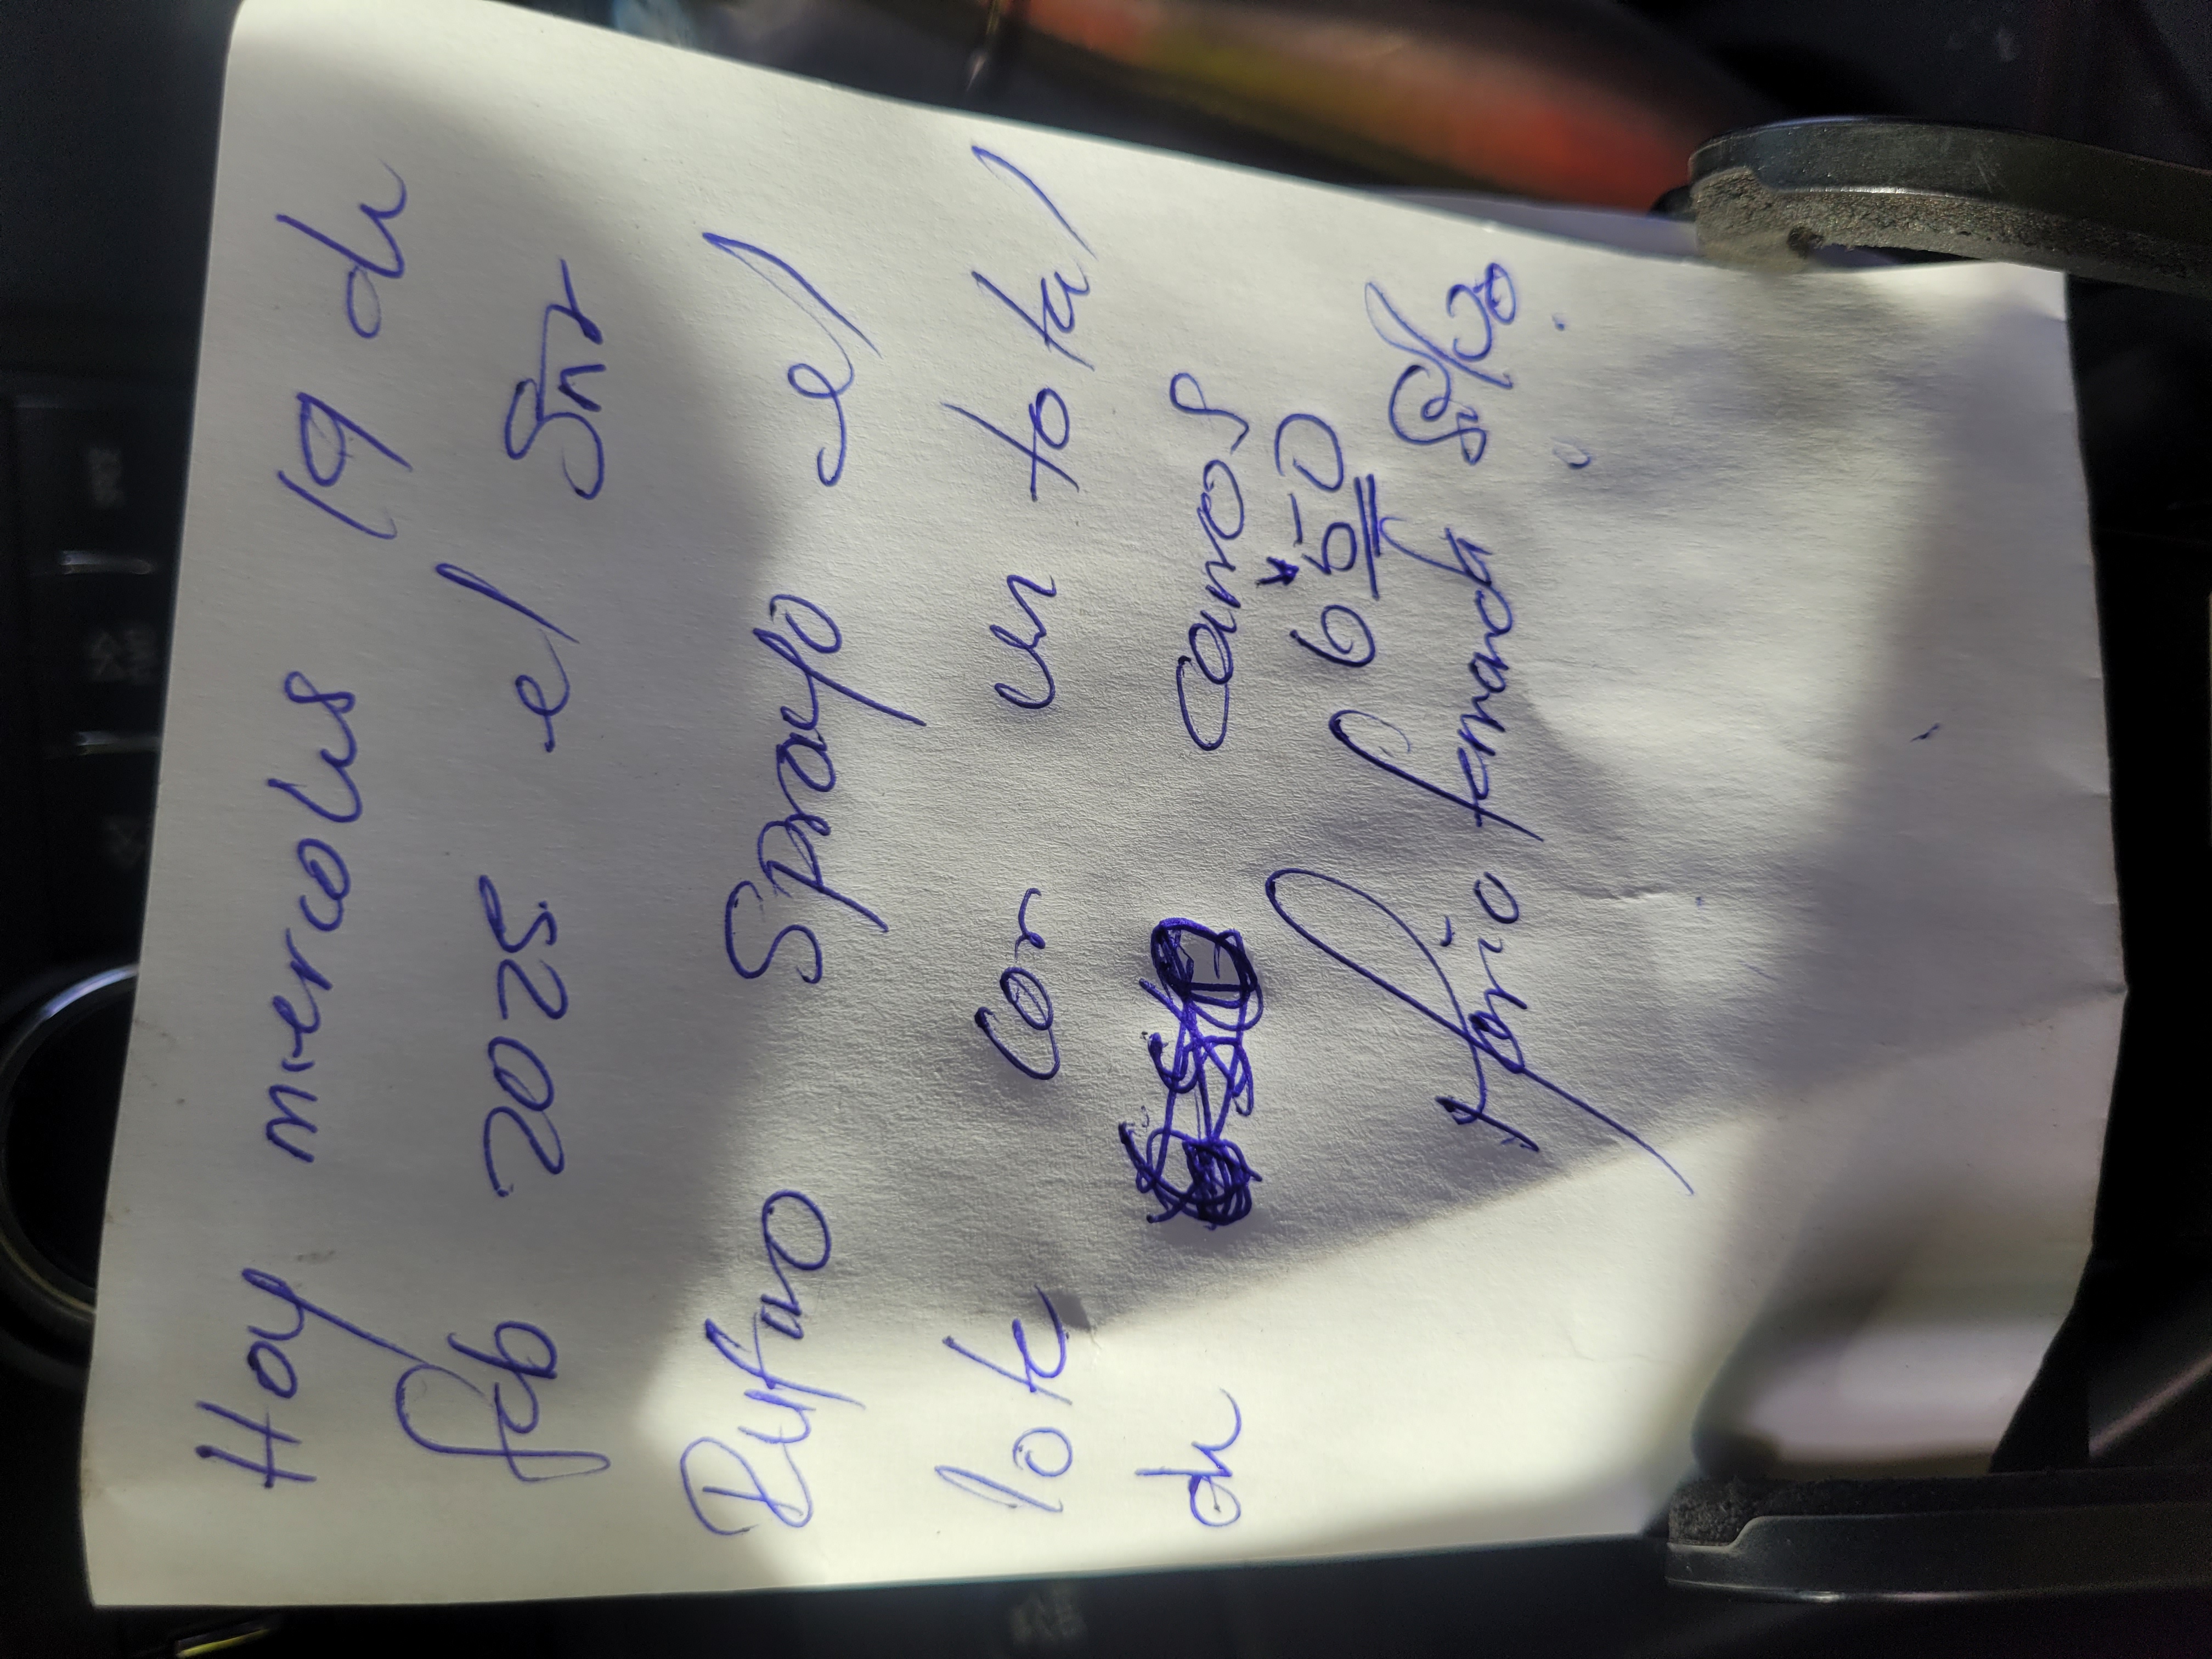 Hoy miercoles 19 de
feb 2025 el Snr
Rufino Sprayo el
lote con un total
de carros
650
Mario fernando Silva